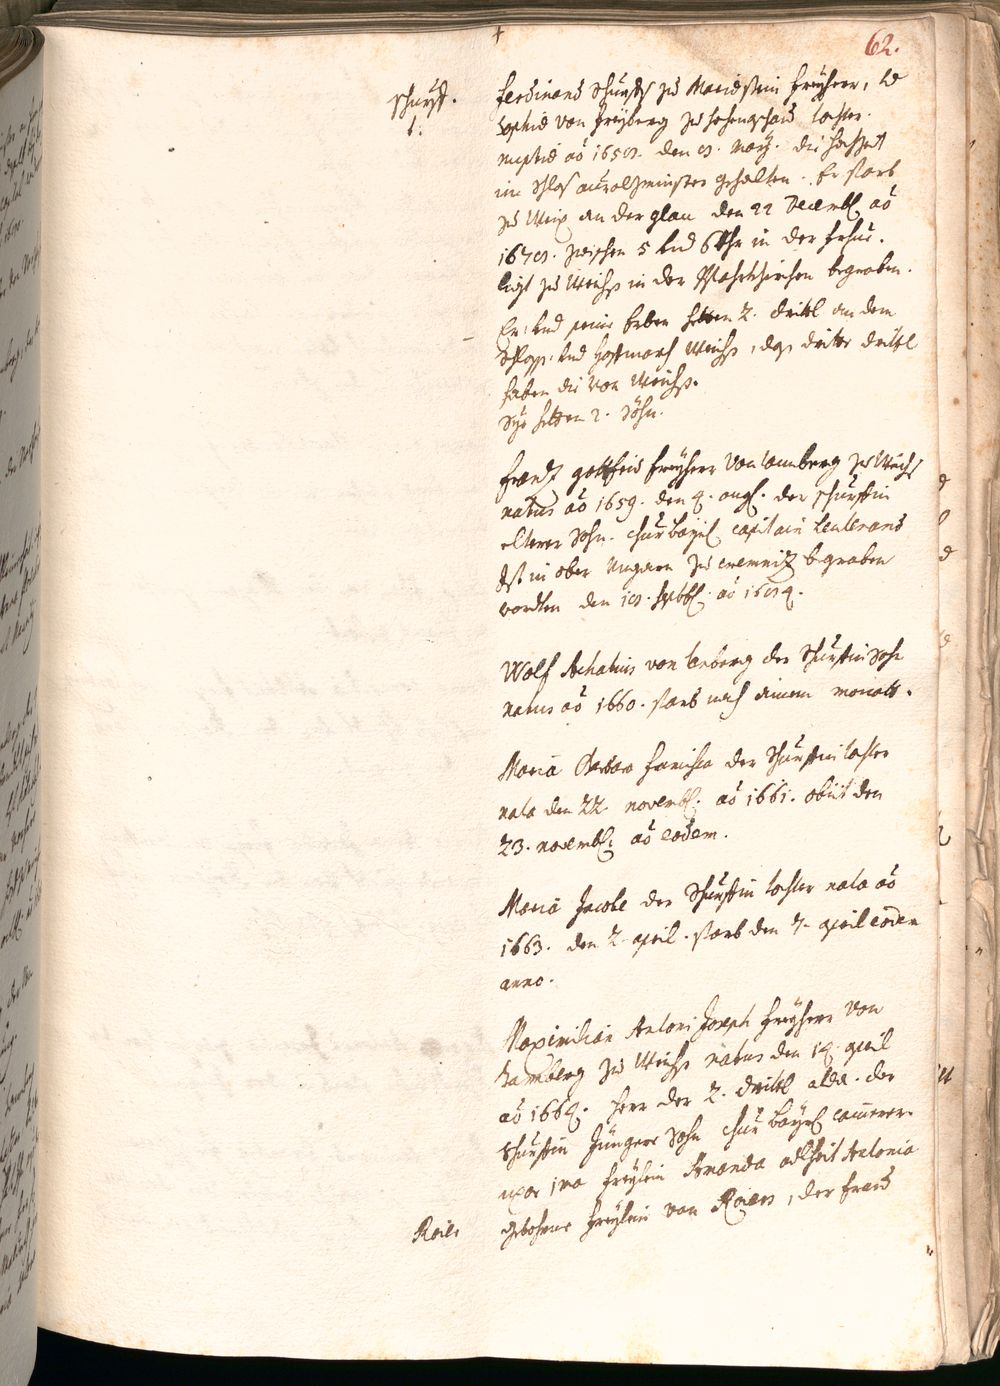 62.
Schurff.
1.
Ferdinand Schurffs zu Mariastein Freyherr, vnd
Sophia von Freyberg zu Hohenaschau tochter.
nuptiae aõ 1658. den 8. May. die hochzeit
im Schlos aurolzminster gehalten. Er starb
zu Weix an der glan den 22 Decembl aõ
1678. zwischen 5 vnd 6 Uhr in der frhue.
ligt zu Weichs in der Pfahrkhirchen begraben.
Er: vnd seine Erben hetten 2. drittl an dem
Schloss: vnd Hoffmarch Weichs, das dritte drittl
haben die von Weichs.
Sye hetten 2. Söhn.
Frantz gottfrid Freyherr von lamberg zu Weichs
natus aõ 1659. den 4. aug. der schurffin
elterer Sohn. churbayrl capitain leutenand
ist in ober Ungarn zu cremnitz begraben
wordten den 18. [Octobl] aõ 1684.
Wolf Achatius von lamberg der Schurffin Sohn
natus aõ 1660. starb nach einem monath.
Maria Barbara Francisca der Schurffin tochter
nata den 22 novembl. aõ 1661. obiit den
23. novembl. aõ eodem.
Maria Jacobe der Schurffin tochter nata aõ
1663. den 2 april. starb den 7. april eodem
anno.
Maximilian Antoni Joseph Freyherr von
Lamberg zu Weichs natus den 14. april
aõ 1664. Herr der 2. drittl alda. der
Schurffin Jüngere Sohn chur bayrl cammerer.
uxor 1ma Freylein Amanda adlheit Antonia
Roien
gebohrne Freylein von Roien, der Frau